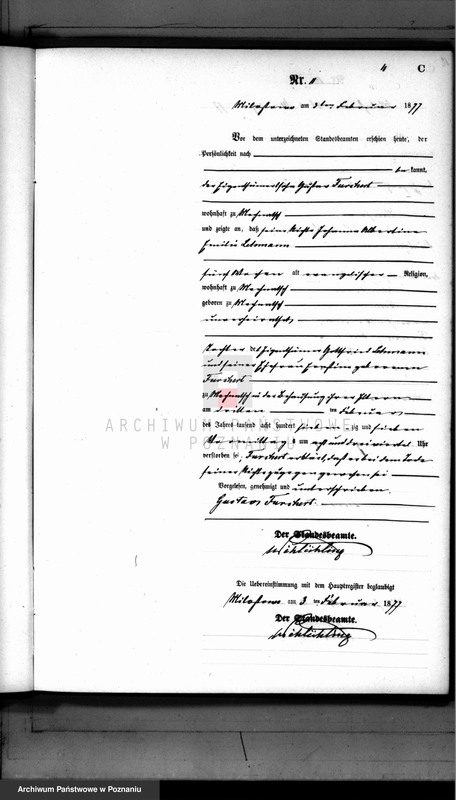 4 C
Nr. 11
Milostowo am 3ten Februar 1877
Vor dem unterzeichneten Standesbeamten erschien heute, der
Persönlichkeit nach
bekannt,
der Eigenthümersohn Gustav Turschert
wohnhaft zu
und zeigte an, daß seine Nichte Johanna Albertine
Emilie Lehmann
fünf Wochen alt evangelischer Religion,
wohnhaft zu
geboren zu
unverheirathet,
Tochter des Eigenthümer Gottfried Lehmann
und seiner Ehefrau geborenen
Turschert
zu in der Behausung ihrer Eltern
am dritten ten Februar
des Jahres tausend acht hundert siebenzig und sieben
Vormittags um acht und drei viertel Uhr
verstorben sei, Turschert erklärt, daß er bei dem Tode
seiner Nichte zugegen gewesen sei
Vorgelesen, genehmigt und unterschrieben.
Gustav Turschert.
Der Standesbeamte.
Die Uebereinstimmung mit dem Hauptregister beglaubigt
Milostowo am 3 ten Februar 1877
Der Standesbeamte.
ARCHIWUM PAŃSTWOWE
W POZNANIU
Archiwum Państwowe w Poznaniu